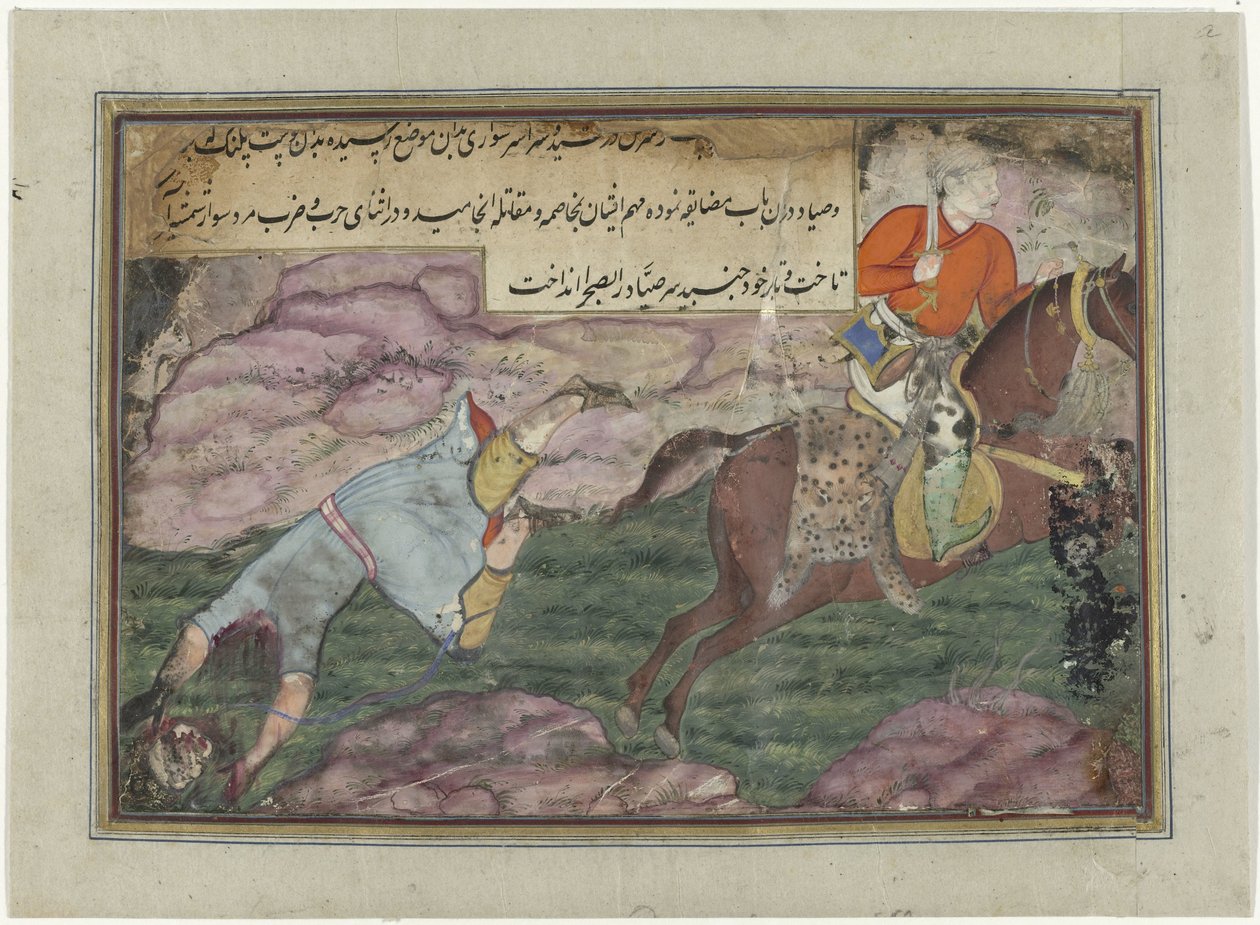 سواری بدان موضع رسیده بدان پوست پلنک
و صیاد دران باب مضایقه نموده مهم ایشان بمخاصمه و مقاتله انجامید و در اثنای حرب و ضرب مرد سوار
تاخت و تا بر خود جنبید سر صیاد را بصحرا انداخت